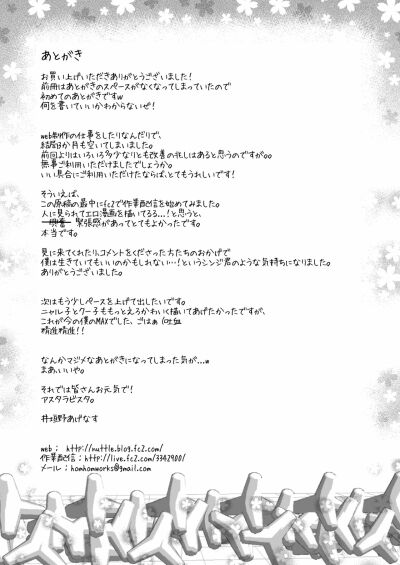 あとがき
お買い上げいただきありがとうございました!
前冊はあとがきのスペースがなくなってしまっていたので
初めてのあとがきですw
何を書いていいかわからないぜ!
web制作の仕事をしたりなんだりで、
結局8か月も空いてしまいました。
前回よりはいろいろ多少なりとも改善の兆しはあると思うのですが。。
無事ご利用いただけましたでしょうか。
いい具合にご利用いただけたならば、とてもうれしいです!
そういえば、
この原稿の最中にfc2で作業配信を始めてみました。
人に見られてエロ漫画を描いてる...!と思うと、
興奮 緊張感があってとてもよかったです。
本当です。
見に来てくれたり、コメントをくださった方たちのおかげで
僕は生きていてもいいのかもしれない…!というシンジ君のような気持ちになりました。
ありがとうございました。
次はもう少しペースを上げて出したいです。
ニャル子とクー子ももっとえろかわいく描いてあげたかったですが、
これが今の僕のMAXでした、ごはぁ(吐血
精進精進!!
なんかマジメなあとがきになってしまった気が...w
まあ、いいや。
それでは皆さんお元気で!
アスタラビスタ。
井垣野あげなす
web: http://nuttle.blog.fc2.com/
作業配信:http://live.fc2.com/3342900/
メール:homhomworks@gmail.com